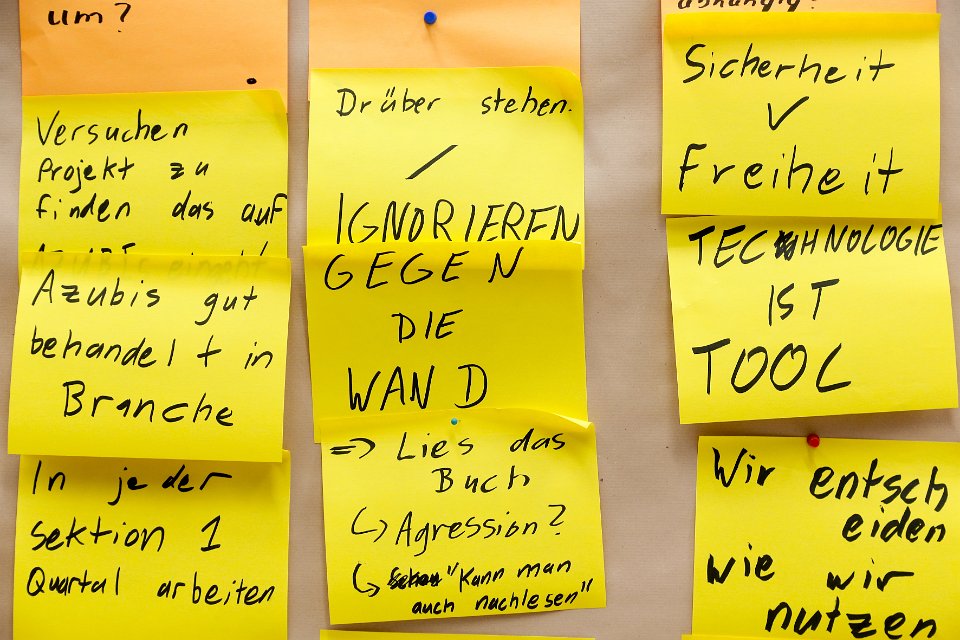 um?
Versuchen
Projekt zu
finden das auf
Azubis
Azubis gut
behandelt in
Branche
In jeder
Sektion 1
Quartal arbeiten
Drüber stehen.
/
IGNORIEREN
GEGEN
DIE
WAND
=> Lies das
Buch
↳ Agression?
↳ "Kann man
auch nachlesen"
abhängig?
Sicherheit
✓
Freiheit
TECHNOLOGIE
IST
TOOL
Wir entsch
eiden
wie wir
nutzen